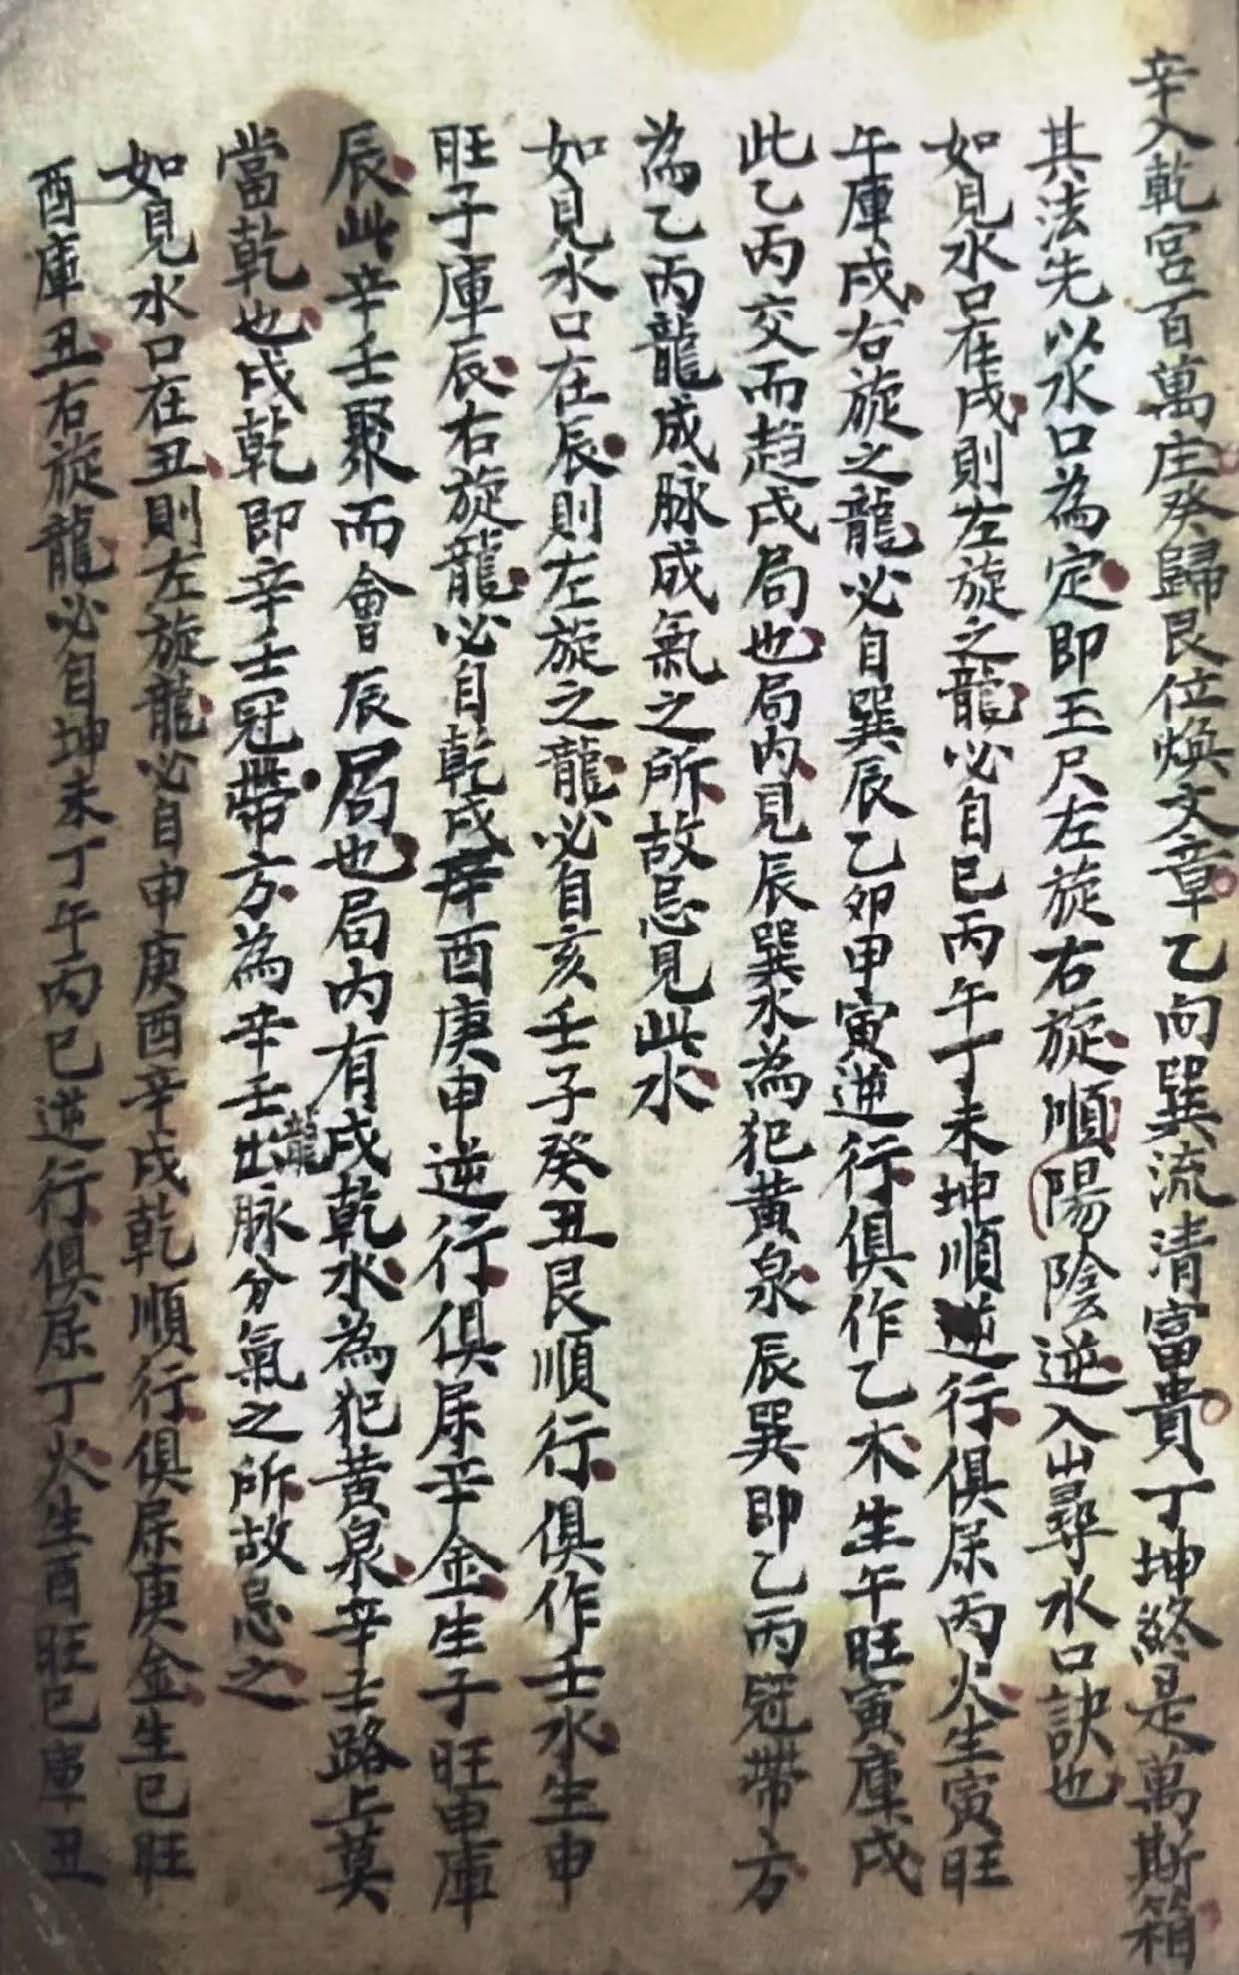 辛入乾宮百萬庄癸歸艮位煥文章乙向巽流清富貴丁坤終是萬斯箱
其法先以水口為定即玉尺左旋右旋順陽陰逆入山尋水口訣也
如見水口在戌則左旋之龍必自巳丙午丁未坤順逆行俱屬丙火生寅旺
午庫戌右旋之龍必自巽辰乙卯甲寅逆行俱作乙木生午旺寅庫戌
此乙丙交而趋戌局也局内見辰巽水為犯黃泉辰巽即乙丙冠帶方
為乙丙龍成脉成氣之所故忌見此水
如見水口在辰則左旋之龍必自亥壬子癸丑艮順行俱作壬水生申
旺子庫辰右旋龍必自乾戌辛酉庚申逆行俱屬辛金生子旺申庫
辰此辛壬聚而會辰局也局内有戌乾水為犯黃泉辛壬路上莫
當乾也戌乾即辛壬冠帶方為辛壬龍出脉分氣之所故忌之
如見水口在丑則左旋龍必自申庚酉辛戌乾順行俱屬庚金生巳旺
酉庫丑右旋龍必自坤未丁午丙巳逆行俱屬丁火生酉旺巳庫丑